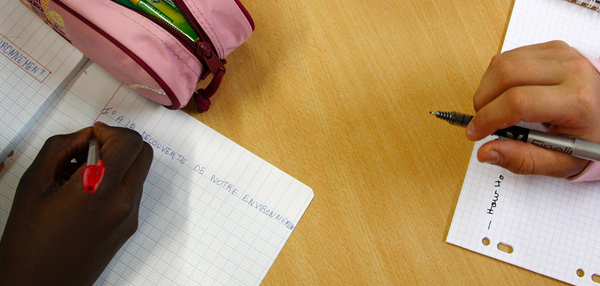 RONNEMENT
I° A LA DÉCOUVERTE DE NOTRE ENVIRONNEMEN
— Haur Ho